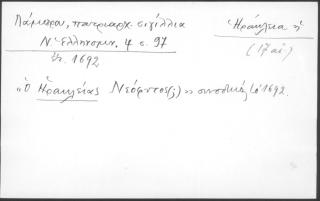 Λάμπρου, πατριαρχ. σιγίλλια
Ν. Ελληνομν. 4 σ. 97
ἔτ. 1692
Ἡράκλεια ἡ
(17 αἰ)
"ὁ Ἡρακλείας Νεόφυτο(ς)" συνοδικ( 1692.